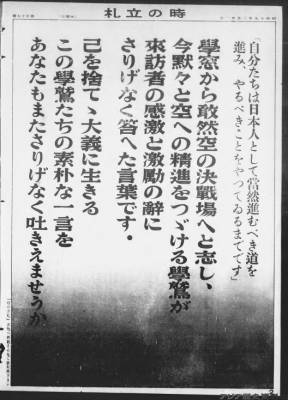 時の立札
「自分たちは日本人として當然進むべき道を
進み、やるべきことをやつてゐるまでです」
學窓から敢然空の決戰場へと志し、
今默々と空への精進をつゞける學鷲が
來訪者の感激と激勵の辭に
さりげなく答へた言葉です。
己を捨てゝ大義に生きる
この學鷲たちの素朴な一言を
あなたもまたさりげなく吐きえませうか